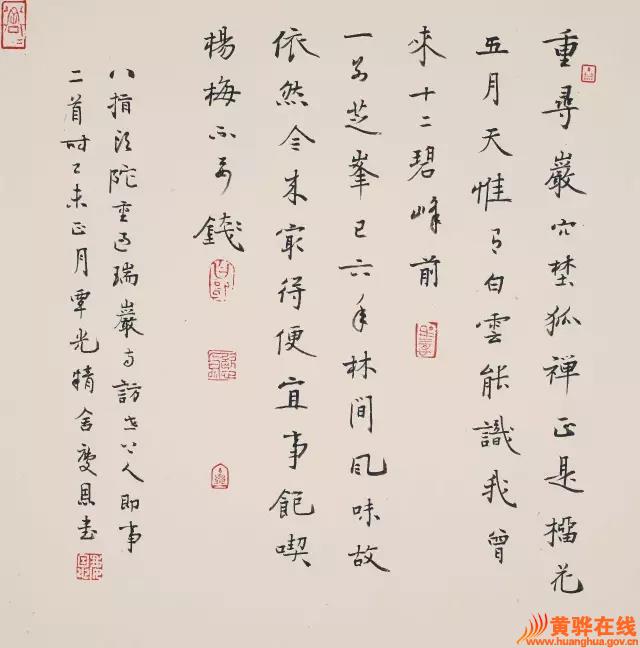 重尋巖穴埜狐禅正是榴花
五月天惟有白雲能識我曾
来十二碧峰前
一别芝峯已六年林間风味故
依然今来最得便宜事飽喫
楊梅不要錢
八指頭陀重过瑞巖寺訪
人即事
二首时乙未正月覃光精舍慶恩书
黄骅在线
www.huanghua.gov.cn